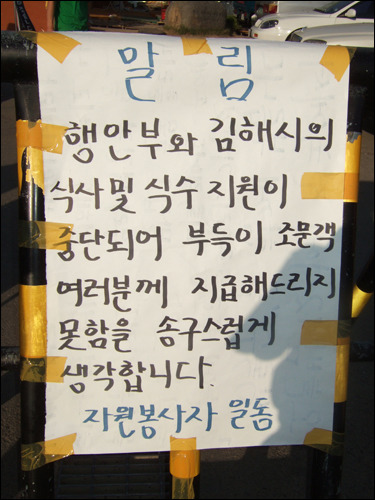 말 림
행안부와 김해시의
식사및 식수 지원이
중단되어 부득이 조문객
여러분께 지급해드리지
못함을 송구스럽게
생각합니다.
자원봉사자 일동